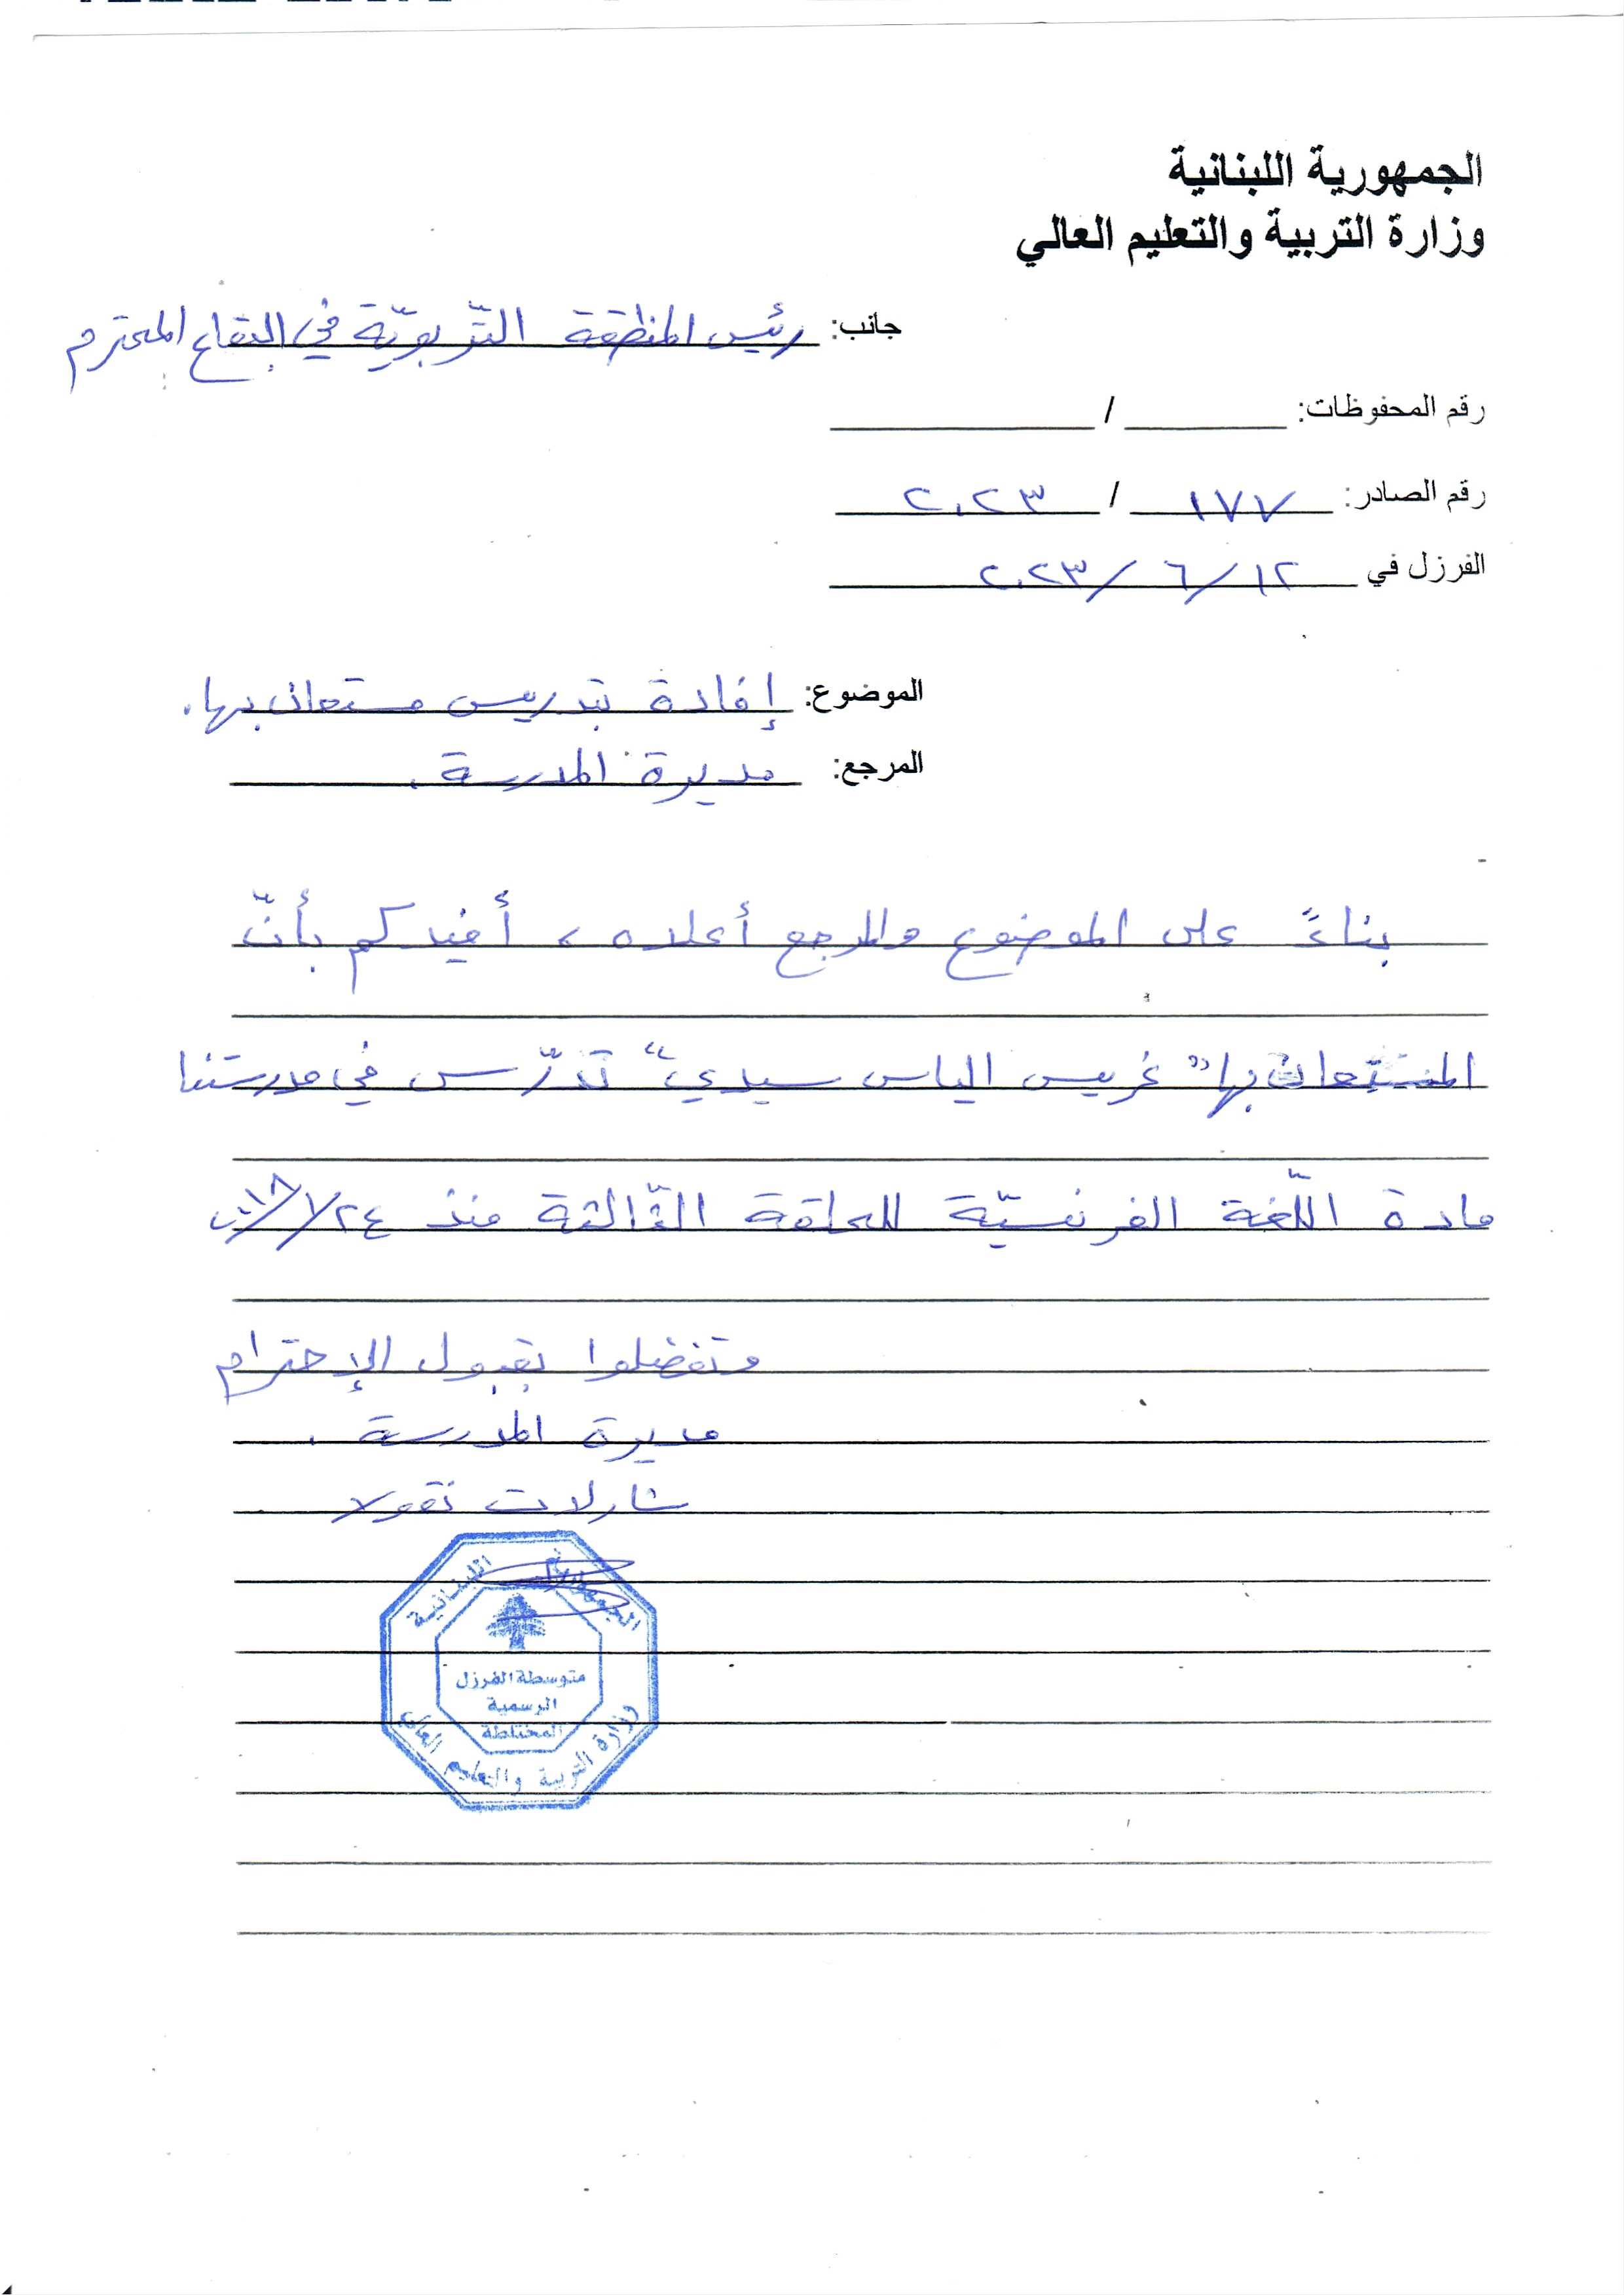 الجمهورية اللبنانية
وزارة التربية والتعليم العالي
جانب: رئيس المنطقة التّربويّة في البقاع المحترم
رقم المحفوظات: /
رقم الصادر: ١٧٧ / ٢٠٢٣
الفرزل في ١٢/ ٦/ ٢٠٢٣
الموضوع: إفادة بتدريس مستعان بها.
المرجع: مديرة المدرسة.
بناءً على الموضوع والمرجع أعلاه، أفيدكم بأنّ
المستعان بها "غريس الياس سيدي" تدرّس في مدرستنا
مادة اللّغة الفرنسيّة للحلقة الثّالثة منذ
وتفضلوا بقبول الإحترام
مديرة المدرسة.
شارلات نقولا
الجمهورية اللبنانية
متوسطة الفرزل
الرسمية
المختلطة
وزارة التربية والتعليم العالي